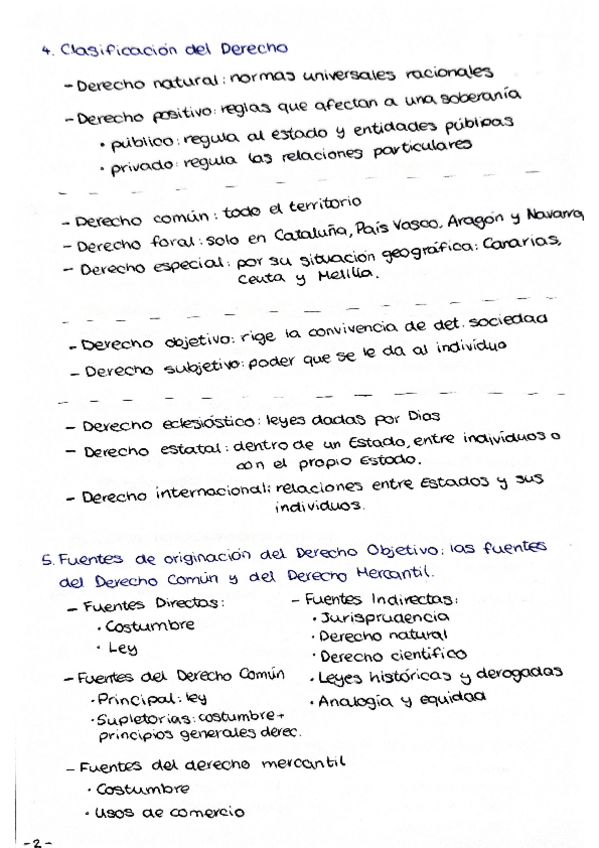 4. Clasificación del Derecho
- Derecho natural: normas universales racionales
- Derecho positivo: reglas que afectan a una soberanía
· público: regula al estado y entidades públicas
· privado: regula las relaciones particulares
- Derecho común: todo el territorio
- Derecho foral: solo en Cataluña, País Vasco, Aragón y Navarra
- Derecho especial: por su situación geográfica: Canarias,
Ceuta y Melilla.
- Derecho objetivo: rige la convivencia de det. sociedad
- Derecho subjetivo: poder que se le da al individuo
- Derecho eclesióstico: leyes dadas por Dios
- Derecho estatal: dentro de un Estado, entre individuos o
con el propio Estado.
- Derecho internacional: relaciones entre Estados y sus
individuos.
5. Fuentes de originación del Derecho Objetivo: las fuentes
del Derecho Común y del Derecho Mercantil.
- Fuentes Directas:
· Costumbre
· Ley
- Fuentes del Derecho Común
· Principal: ley
· Supletorias: costumbre +
principios generales derec.
- Fuentes del derecho mercantil
· Costumbre
· Usos de comercio
- Fuentes Indirectas:
· Jurisprudencia
· Derecho natural
· Derecho científico
· Leyes históricas y derogadas
· Analogía y equidad
-2-